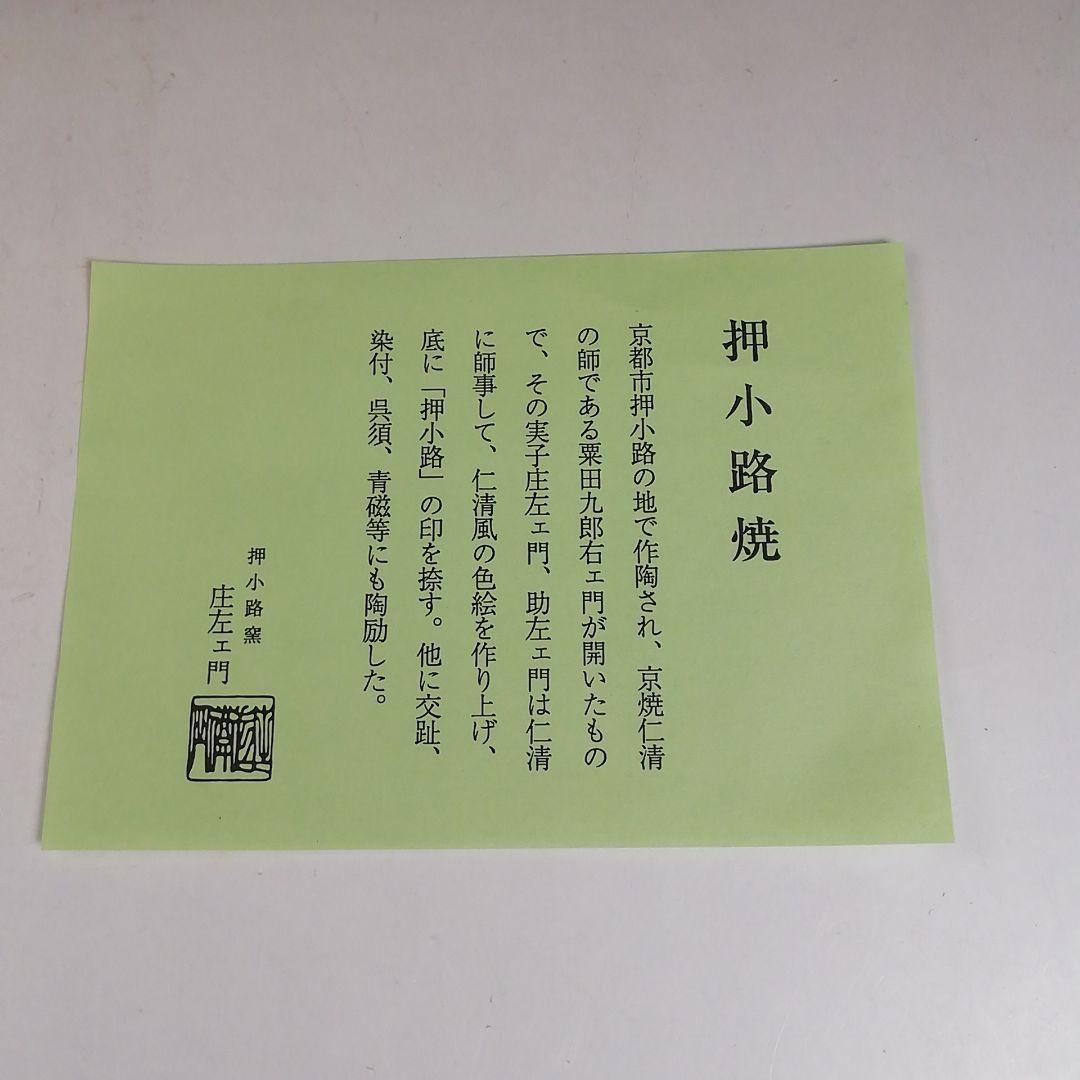 押小路焼
京都市押小路の地で作陶され、京焼仁清
の師である粟田九郎右ェ門が開いたもの
で、その実子庄左ェ門、助左ェ門は仁清
に師事して、仁清風の色絵を作り上げ、
底に「押小路」の印を捺す。他に交趾、
染付、呉須、青磁等にも陶励した。
押小路窯
庄左ェ門